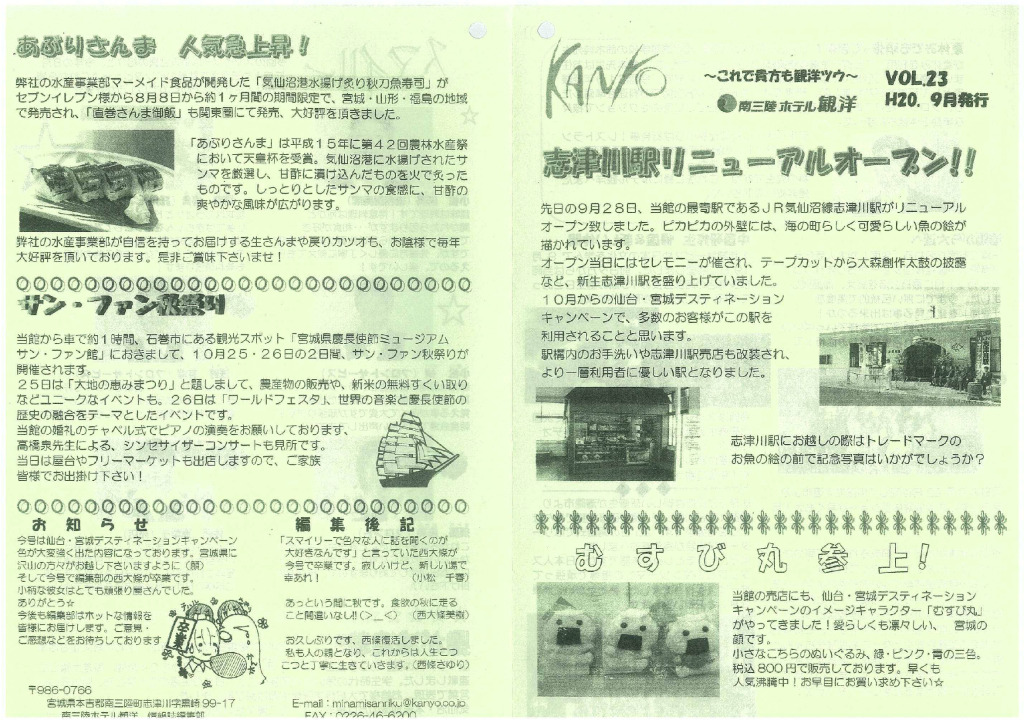 あぶりさんま 人気急上昇！
弊社の水産事業部マーメイド食品が開発した「気仙沼港水揚げ炙り秋刀魚寿司」が
セブンイレブン様から8月8日から約1ヶ月間の期間限定で、宮城・山形・福島の地域
で発売され、「直巻さんま御飯」も関東圏にて発売、大好評を頂きました。
「あぶりさんま」は平成15年に第42回農林水産祭
において天皇杯を受賞。気仙沼港に水揚げされたサ
ンマを厳選し、甘酢に漬け込んだものを火で炙った
ものです。しっとりとしたサンマの食感に、甘酢の
爽やかな風味が広がります。
弊社の水産事業部が自信を持ってお届けする生さんまや戻りカツオも、お陰様で毎年
大好評を頂いております。是非ご賞味下さいませ！
サン・ファン秋祭り
当館から車で約1時間、石巻市にある観光スポット「宮城県慶長使節ミュージアム
サン・ファン館」におきまして、10月25・26日の2日間、サン・ファン秋祭りが
開催されます。
25日は「大地の恵みまつり」と題しまして、農産物の販売や、新米の無料すくい取り
などユニークなイベントも。26日は「ワールドフェスタ」、世界の音楽と慶長使節の
歴史の融合をテーマとしたイベントです。
当館の婚礼のチャペル式でピアノの演奏をお願いしております、
高橋泉先生による、シンセサイザーコンサートも見所です。
当日は屋台やフリーマーケットも出店しますので、ご家族
皆様でお出掛け下さい！
お知らせ
今号は仙台・宮城デスティネーションキャンペーン
色が大変強く出た内容になっております。宮城県に
沢山の方々がお越し下さいますように（願）
そして今号で編集部の西大條が卒業です。
小柄な彼女はとても頑張り屋さんでした。
ありがとう☆
今後も編集部はホットな情報を
皆様にお届けします。ご意見・
ご感想などをお待ちしております
卒業
編集後記
「スマイリーで色々な人に話を聞くのが
大好きなんです」と言っていた西大條が
今号で卒業です。寂しいけど、新しい道で
幸あれ！ （小松 千春）
あっという間に秋です。食欲の秋に走る
こと間違いなし!!（＞_＜） （西大條美樹）
お久しぶりです、西條復活しました。
私も人の親となり、これからは人生こつ
こつと丁寧に生きていきます。（西條さゆり）
〒986-0766
宮城県本吉郡南三陸町志津川字黒崎99-17
南三陸ホテル観洋 情報誌編集部
E-mail：minamisanriku@kanyo.co.jp
FAX：0226-46-6200
KANYO
～これで貴方も観洋ツウ～
南三陸ホテル観洋
VOL.23
H20. 9月発行
志津川駅リニューアルオープン!!
先日の9月28日、当館の最寄駅であるJR気仙沼線志津川駅がリニューアル
オープン致しました。ピカピカの外壁には、海の町らしく可愛らしい魚の絵が
描かれています。
オープン当日にはセレモニーが催され、テープカットから大森創作太鼓の披露
など、新生志津川駅を盛り上げていました。
10月からの仙台・宮城デスティネーション
キャンペーンで、多数のお客様がこの駅を
利用されることと思います。
駅構内のお手洗いや志津川駅売店も改装され、
より一層利用者に優しい駅となりました。
志津川駅にお越しの際はトレードマークの
お魚の絵の前で記念写真はいかがでしょうか？
むすび丸参上！
当館の売店にも、仙台・宮城デスティネーション
キャンペーンのイメージキャラクター「むすび丸」
がやってきました！愛らしくも凛々しい、 宮城の
顔です。
小さなこちらのぬいぐるみ、緑・ピンク・青の三色。
税込800円で販売しております。早くも
人気沸騰中！お早目にお買い求め下さい☆